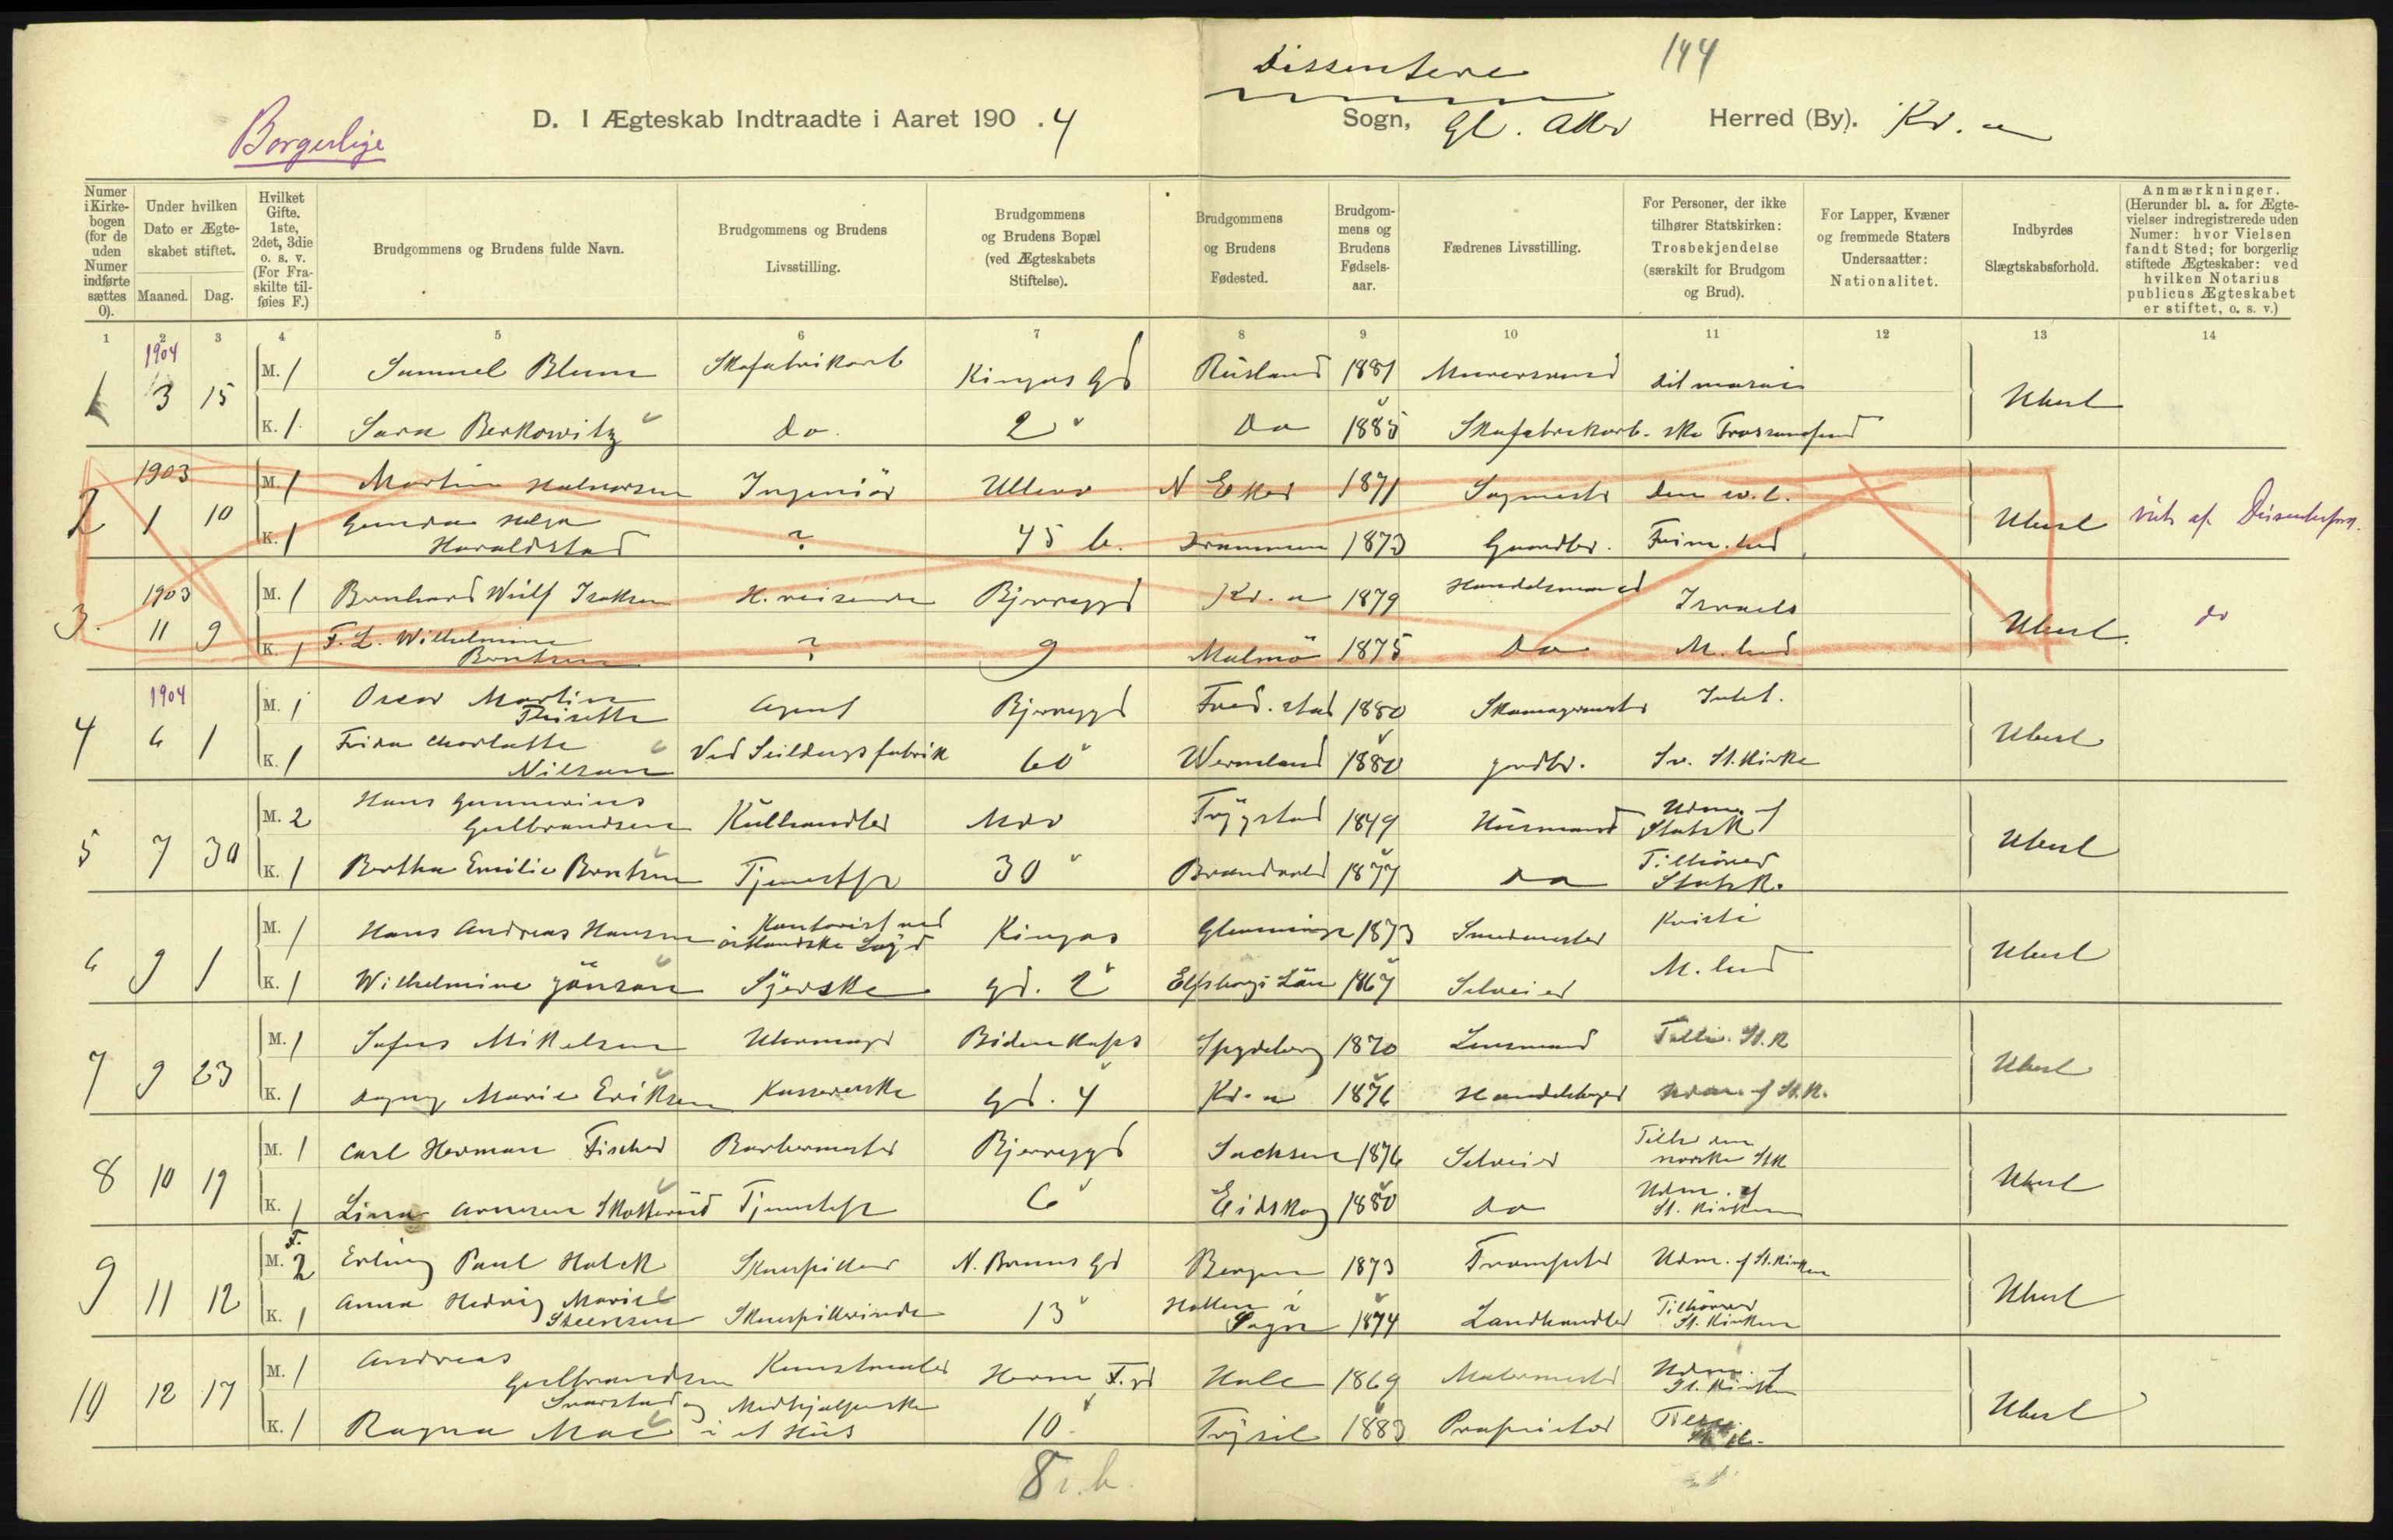 Dissentere 144
Borgerlige
D. I Ægteskab Indtraadte i Aaret 190.4 Sogn, Gl. Aker Herred (By). Kr.a
Numer i Kirkebogen (for de uden Numer indførte sættes 0).
Under hvilken Dato er Ægteskabet stiftet.
Maaned. Dag.
Hvilket Gifte. 1ste, 2det, 3die o. s. v. (For Fraskilte tilføies F.)
Brudgommens og Brudens fulde Navn.
Brudgommens og Brudens Livsstilling.
Brudgommens og Brudens Bopæl (ved Ægteskabets Stiftelse).
Brudgommens og Brudens Fødested.
Brudgommens og Brudens Fødselsaar.
Fædrenes Livsstilling.
For Personer, der ikke tilhører Statskirken: Trosbekjendelse (særskilt for Brudgom og Brud).
For Lapper, Kvæner og fremmede Staters Undersaatter: Nationalitet.
Indbyrdes Slægtskabsforhold.
Anmærkninger. (Herunder bl. a. for Ægtevielser indregistrerede uden Numer: hvor Vielsen fandt Sted; for borgerlig stiftede Ægteskaber: ved hvilken Notarius publicus Ægteskabet er stiftet, o. s. v.)
1 2 3 4 5 6 7 8 9 10 11 12 13 14
1904
1 3 15 M. 1 Samuel Blum Skofabrikarb Kingos Gd Rusland 1881 Murersvend dil mosai
K. 1 Sara Berkowitz do. 2 do 1885 Skofabrikarb. ske Trossamfund Ubesl
1903
2 1 10 M. 1 Martin Halvorsen Ingeniør Ullevv N Eker 1871 Sagmester den ev. l.
K. 1 Gunda Helga Haraldstad ? 45 b. Drammen 1873 Gaardbr. Frim. hed Ubesl
1903
3. 11 9 M. 1 Bernhard Wulf Isaksen H. reisende Bjerreggd Kr.a 1879 Handelsmand Israels
K. 1 F. L. Wilhelmine Berntsen ? 9 Malmø 1875 do M. hed Ubesl. do
1904
4 6 1 M. 1 Oscar Martin Agent Bjerreggd Fred.stad 1880 Skomagermester Intet.
K. 1 Frida Charlotte Nilsson Ved Seildugsfabrik 60 Wermland 1880 grdbr. Sv. St.kirke Ubesl
5 7 30 M. 2 Hans Gunnerius Gulbrandsen Kulhandler Mdv Trygstad 1849 Husmand Udm. af Statsk
K. 1 Bertha Emilie Berntsen Tjenestp 30 Brandvold 1877 do Tilhører Statsk. Ubesl
6 9 1 M. 1 Hans Andreas Hansen Kontorist ved Kingos Glemminge 1873 Smedmester Kristi
K. 1 Wilhelmine Jönson Syerske gd. 2 Elfsborgs Län 1867 Selveier M. hed Ubesl
7 9 23 M. 1 Sofus Mikelsen Uhrmager Bidenkaps Spydeberg 1870 Lensmand Tilhr. St.k
K. 1 Dagny Marie Eriksen Kassererske Gd. 4 Kr.a 1876 Handelsbager Udm. af St.k. Ubesl
8 10 19 M. 1 Carl Herman Fischer Barbermester Bjerreggd Sachsen 1876 Selveier Tilh den norske Stk
K. 1 Lina Arnesen Skotterud Tjenestp 6 Eidskog 1880 do Udm. af St. kirken Ubesl
F.
9 11 12 M. 2 Erling Paul Halck Skuespiller N. Bruns Gd Bergen 1873 Trompeter Udm. af St.kirken
K. 1 Anna Hedvig Marie Steensen Skuespillerinde 13 Holten i 1874 Landhandler Tilhører St. kirken Ubesl
10 12 17 M. 1 Andreas Gulbrandsen Svarstad Kunstmaler Herm F.gd Hole 1869 Malermester Udm. af St. kirken
K. 1 Ragna Moe Medhjælperske i et Hus 10. Trysil 1883 Proprietær Ubesl
8 i.b.